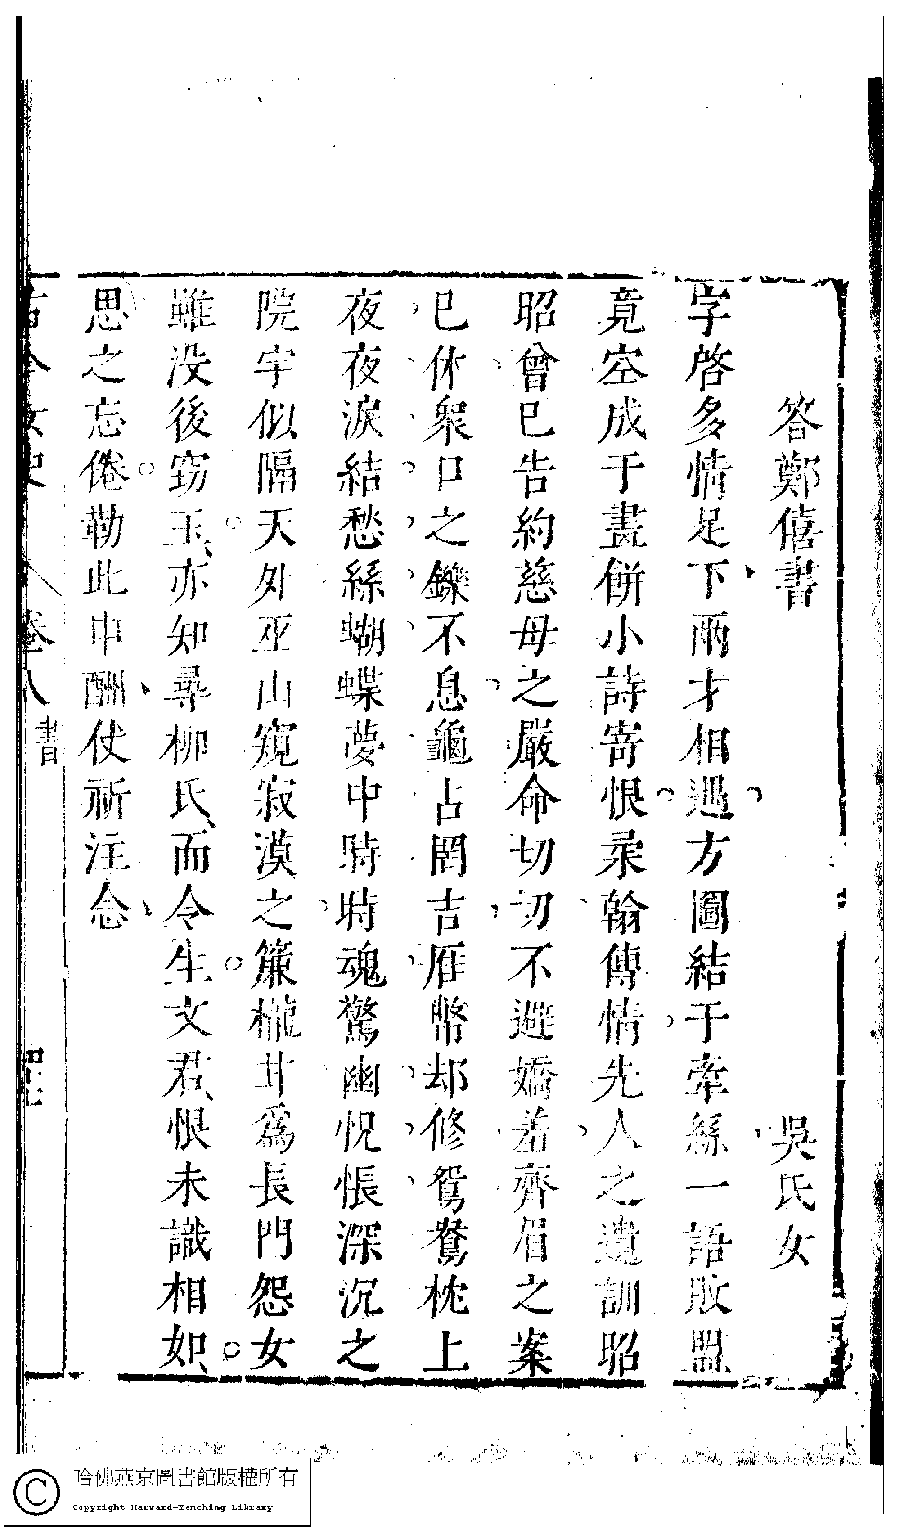 答鄭僖書
吳氏女
字啓多情足下兩才相遇方圖結于牽絲一語敗盟
竟空成于畫餅小詩寄恨柔翰傳情先人之遺訓昭
昭曾已告約慈母之嚴命切切不避嬌羞齊眉之案
已休衆口之鑠不息龜占罔吉雁幣却修鴛鴦枕上
夜夜淚結愁絲蝴蝶夢中時時魂驚幽怳悵深沉之
院宇似隔天外巫山窺寂漠之簾櫳甘爲長門怨女
雖没後窃玉亦知尋柳氏而令生文君恨未識相如
思之忘倦勒此申酬伏祈注念
古今女史
卷八
書
哈佛燕京圖書館版權所有
Copyright Harvard-Yenching Library